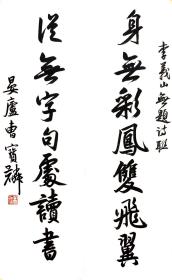 李義山無題詩聯
身無彩鳳雙飛翼
從無字句處讀書
晏廬曹寶麟